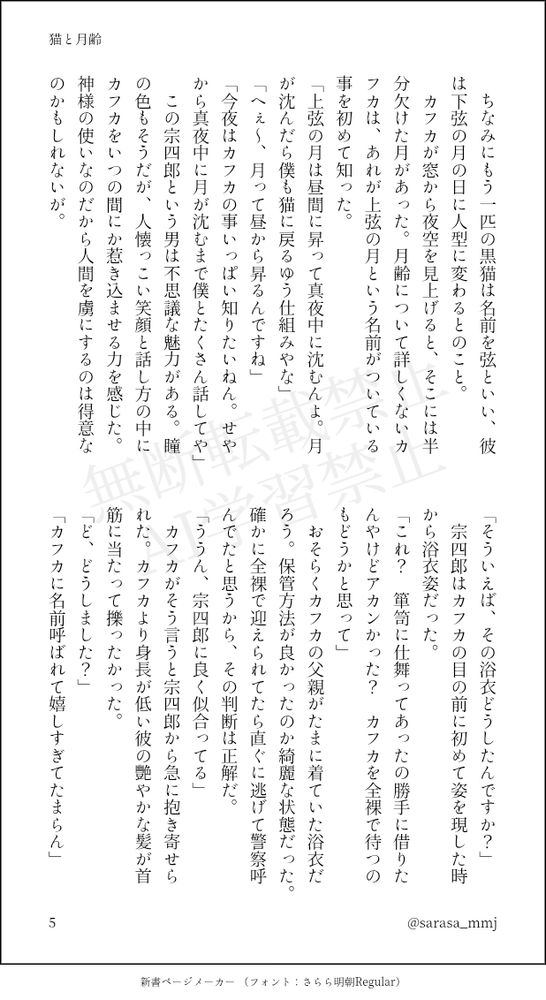 猫と月齢
ちなみにもう一匹の黒猫は名前を弦といい、彼
は下弦の月の日に人型に変わるとのこと。
カフカが窓から夜空を見上げると、そこには半
分欠けた月があった。月齢について詳しくないカ
フカは、あれが上弦の月という名前がついている
事を初めて知った。
「上弦の月は昼間に昇って真夜中に沈むんよ。月
が沈んだら僕も猫に戻るゆう仕組みやな」
「へぇ〜、月って昼から昇るんですね」
「今夜はカフカの事いっぱい知りたいねん。せや
から真夜中に月が沈むまで僕とたくさん話してや」
この宗四郎という男は不思議な魅力がある。瞳
の色もそうだが、人懐っこい笑顔と話し方の中に
カフカをいつの間にか惹き込ませる力を感じた。
神様の使いなのだから人間を虜にするのは得意な
のかもしれないが。
「そういえば、その浴衣どうしたんですか？」
宗四郎はカフカの目の前に初めて姿を現した時
から浴衣姿だった。
「これ？　箪笥に仕舞ってあったの勝手に借りた
んやけどアカンかった？　カフカを全裸で待つの
もどうかと思って」
おそらくカフカの父親がたまに着ていた浴衣だ
ろう。保管方法が良かったのか綺麗な状態だった。
確かに全裸で迎えられてたら直ぐに逃げて警察呼
んでたと思うから、その判断は正解だ。
「ううん、宗四郎に良く似合ってる」
カフカがそう言うと宗四郎から急に抱き寄せら
れた。カフカより身長が低い彼の艶やかな髪が首
筋に当たって擽ったかった。
「ど、どうしました？」
「カフカに名前呼ばれて嬉しすぎてたまらん」
無断転載禁止
AI学習禁止
5
@sarasa_mmj
新書ページメーカー（フォント：さらら明朝Regular）